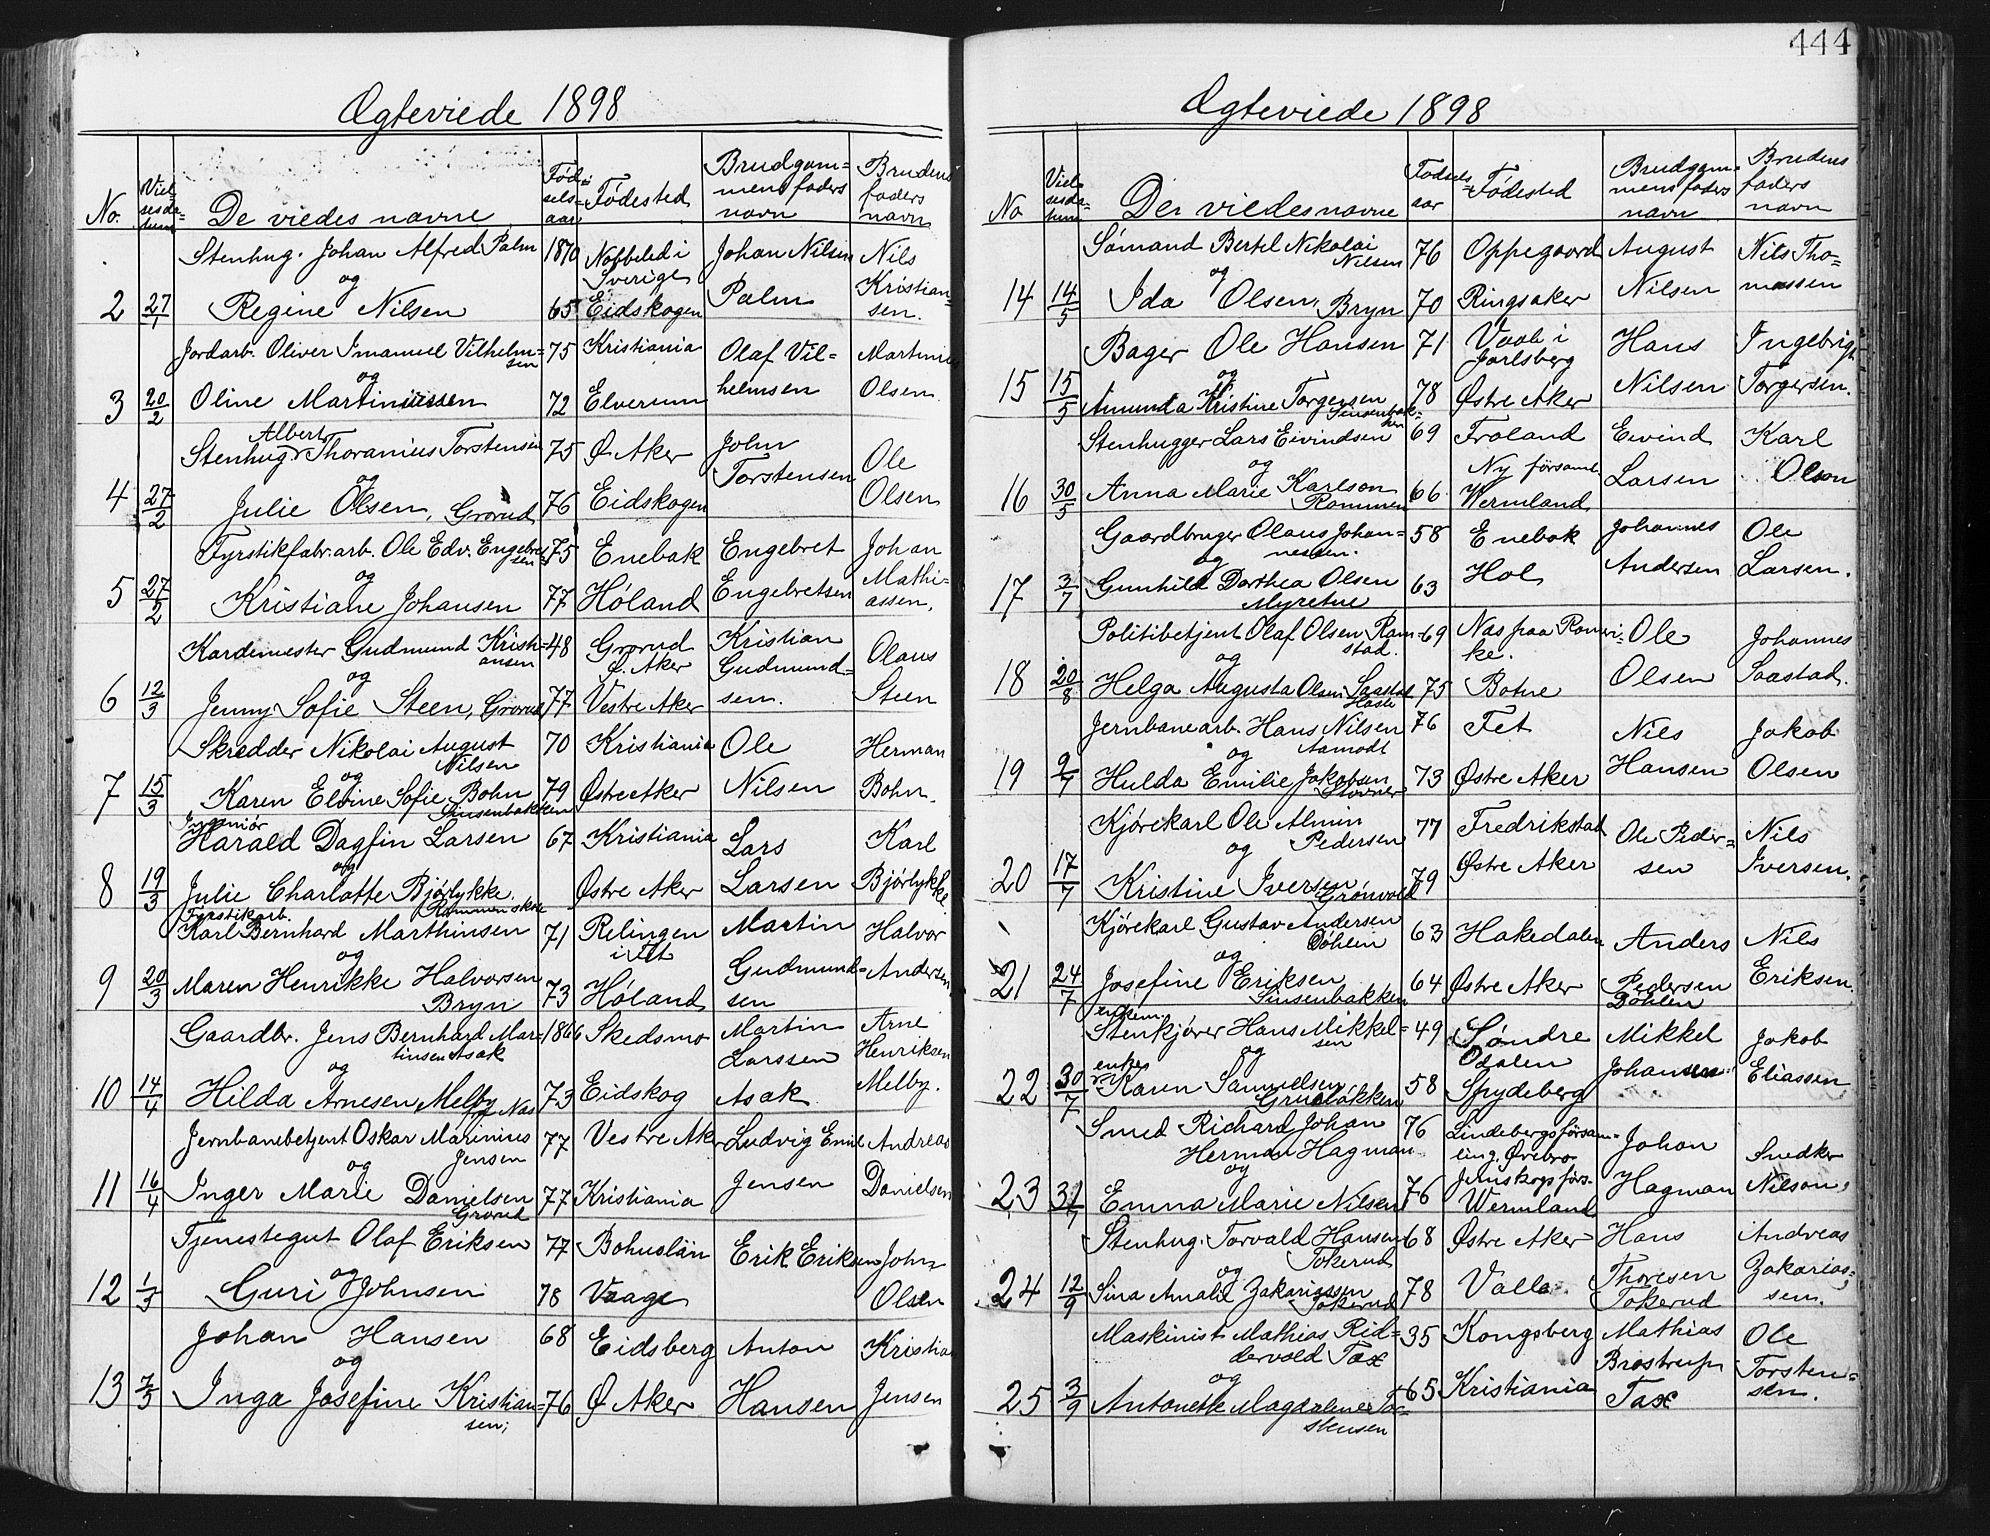 Ægteviede 1898
No.
Viel-
sesda-
tum
De viedes navne
Fød-
sels-
aar
Fødested
Brudgom-
mens faders
navn
Brudens
faders
navn
2
27/1
Stenhug. Johan Alfred Palm
og
Regine Nilsen
1870
65
Nobbeled i
Sverige
Eidskogen
Johan Nilsen
Palm
Nils
Kristian-
sen.
3
20/2
Jordarb. Oliver Imanuel Vilhelm-
sen
og
Oline Martiniussen
75
72
Kristiania
Elverum
Olaf Vil-
helmsen
Martinius
Olsen
4
27/2
Albert
Stenhug. Thoranius Torstensen
og
Julie Olsen, Grorud
75
76
Ø Aker
Eidskogen
John
Torstensen
Ole
Olsen
5
27/2
Fyrstikfabr. arb. Ole Edv. Engebret-
sen
og
Kristiane Johansen
75
77
Enebak
Høland
Engebret
Engebretsen
Johan
Mathi-
assen.
6
12/3
Kardemester Gudmund Kristi-
ansen
og
Jenny Sofie Steen, Grorud
48
77
Grorud
Ø. Aker
Vestre Aker
Kristian
Gudmund-
sen.
Olaus
Steen
7
15/3
Skrædder Nikolai August
Nilsen
og
Karen Elvine Sofie Bohn
Sinsenbakken
70
79
Kristiania
Østre Aker
Ole
Nilsen
Herman
Bohn.
8
19/3
Ingeniør
Harald Dagfin Larsen
og
Julie Charlotte Bjørlykke.
Rommen skole
67
Kristiania
Østre Aker
Lars
Larsen
Karl
Bjørlykke.
9
20/3
Fyrstikarb.
Karl Bernhard Marthinsen
og
Maren Henrikke Halvorsen
Bryn
71
73
Relingen
i Fet
Høland
Martin
Gudmund-
sen
Halvor
Andersen
10
14/4
Gaardbr. Jens Bernhard Mar-
tinsen Asak
og
Hilda Arnesen Melby
Nas
1866
73
Skedsmo
Eidskog
Martin
Larssen
Asak
Arne
Henriksen
Melby.
11
16/4
Jernbanebetjent Oskar Marinius
Jensen
og
Inger Marie Danielsen
Grorud
77
77
Vestre Aker
Kristiania
Ludvig Emil
Jensen
Andreas
Danielsen
12
1/3
Tjenestegut Olaf Eriksen
og
Guri Johnsen
77
78
Bohuslän
Vaage
Erik Eriksen
John
Olsen
13
7/5
Johan Hansen
og
Inga Josefine Kristian-
sen;
68
76
Eidsberg
Ø Aker
Anton
Hansen
Kristian
Jensen
444
Ægteviede 1898
No
Viel-
sesda-
tum
De viedes navne
Fødsels-
aar
Fødested
Brudgom-
mens faders
navn
Brudens
faders
navn
14
14/5
Sømand Bertel Nikolai
Nilsen
og
Ida Olsen, Bryn
76
70
Oppegaard
Ringsaker
August
Nilsen
Nils Tho-
massen
15
15/5
Bager Ole Hansen
og
Amunda Kristine Torgersen
Sinsenbak-
ken
71
78
Vaale i
Jarlsberg
Østre Aker
Hans
Nilsen
Ingebrigt
Torgersen.
16
30/5
Stenhugger Lars Eivindsen
og
Anna Marie Karlson
Rommen
69
66
Froland
Ny församl.
Wermland
Eivind
Larsen
Karl
Olson
17
3/7
Gaardbruger Olaus Johan-
nessen.
og
Gunhild Dorthea Olsen
Myretue
58
63
Enebak
Hol
Johannes
Andersen
Ole
Larsen.
18
20/8
Politibetjent Olaf Olsen Ram-
stad.
og
Helga Augusta Olsen Saastad
Hasle
69
75
Nas paa Romeri-
ke.
Botne
Ole
Olsen
Johannes
Saastad.
19
9/7
Jernbanearb. Hans Nilsen
Aamodt
og
Hulda Emilie Jakobsen
Stovner
76
73
Fet
Østre Aker
Nils
Hansen
Jakob
Olsen
20
17/7
Kjørekarl Ole Almin
Pedersen
og
Kristine Iversen
Grønvold
77
79
Fredrikstad
Østre Aker
Ole Peder-
sen
Nils
Iversen.
21
24/7
Kjørekarl Gustav Andersen
Døhlen
og
Josefine Eriksen
Sinsenbakken
63
64
Hakedalen
Østre Aker
Anders
Pedersen
Døhlen
Nils
Eriksen.
22
30/7
enkem.
Stenkjører Hans Mikkel-
sen
og
enke
Karen Samuelsen
Grualøkken
49
58
Søndre
Odalen
Spydeberg
Mikkel
Johansen
Jakob
Eliassen
23
31/7
Smed Richard Johan
Herman Hagman
og
Emma Marie Nilsen
76
76
Lindebergs försam-
ling, Örebro
förs.
Wermland
Johan
Hagman
Snedker
Nilson,
24
12/9
Stenhug. Torvald Hansen
Tokerud
og
Sina Amalie Zakariassen
Tokerud
68
78
Østre Aker
Valle
Hans
Thoresen
Tokerud
Andreas
Zakarias-
sen.
25
3/9
Maskinist Mathias Rid-
dervold Tax
og
Antonette Magdalene Tor-
stensen
35
65
Kongsberg
Kristiania
Mathias
Brostrup
Tax
Ole
Torsten-
sen.